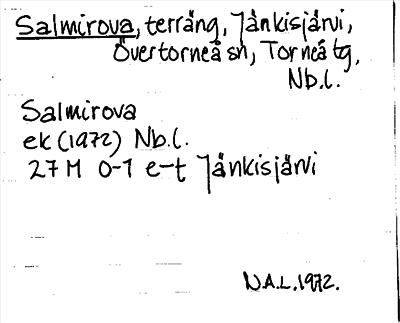 Salmirova, terräng, Jänkisjärvi,
Övertorneå sn, Torneå tg,
Nb.l.
Salmirova
ek (1972) Nb.l.
27 M 0-1 e-t Jänkisjärvi
N.A.L. 1972.